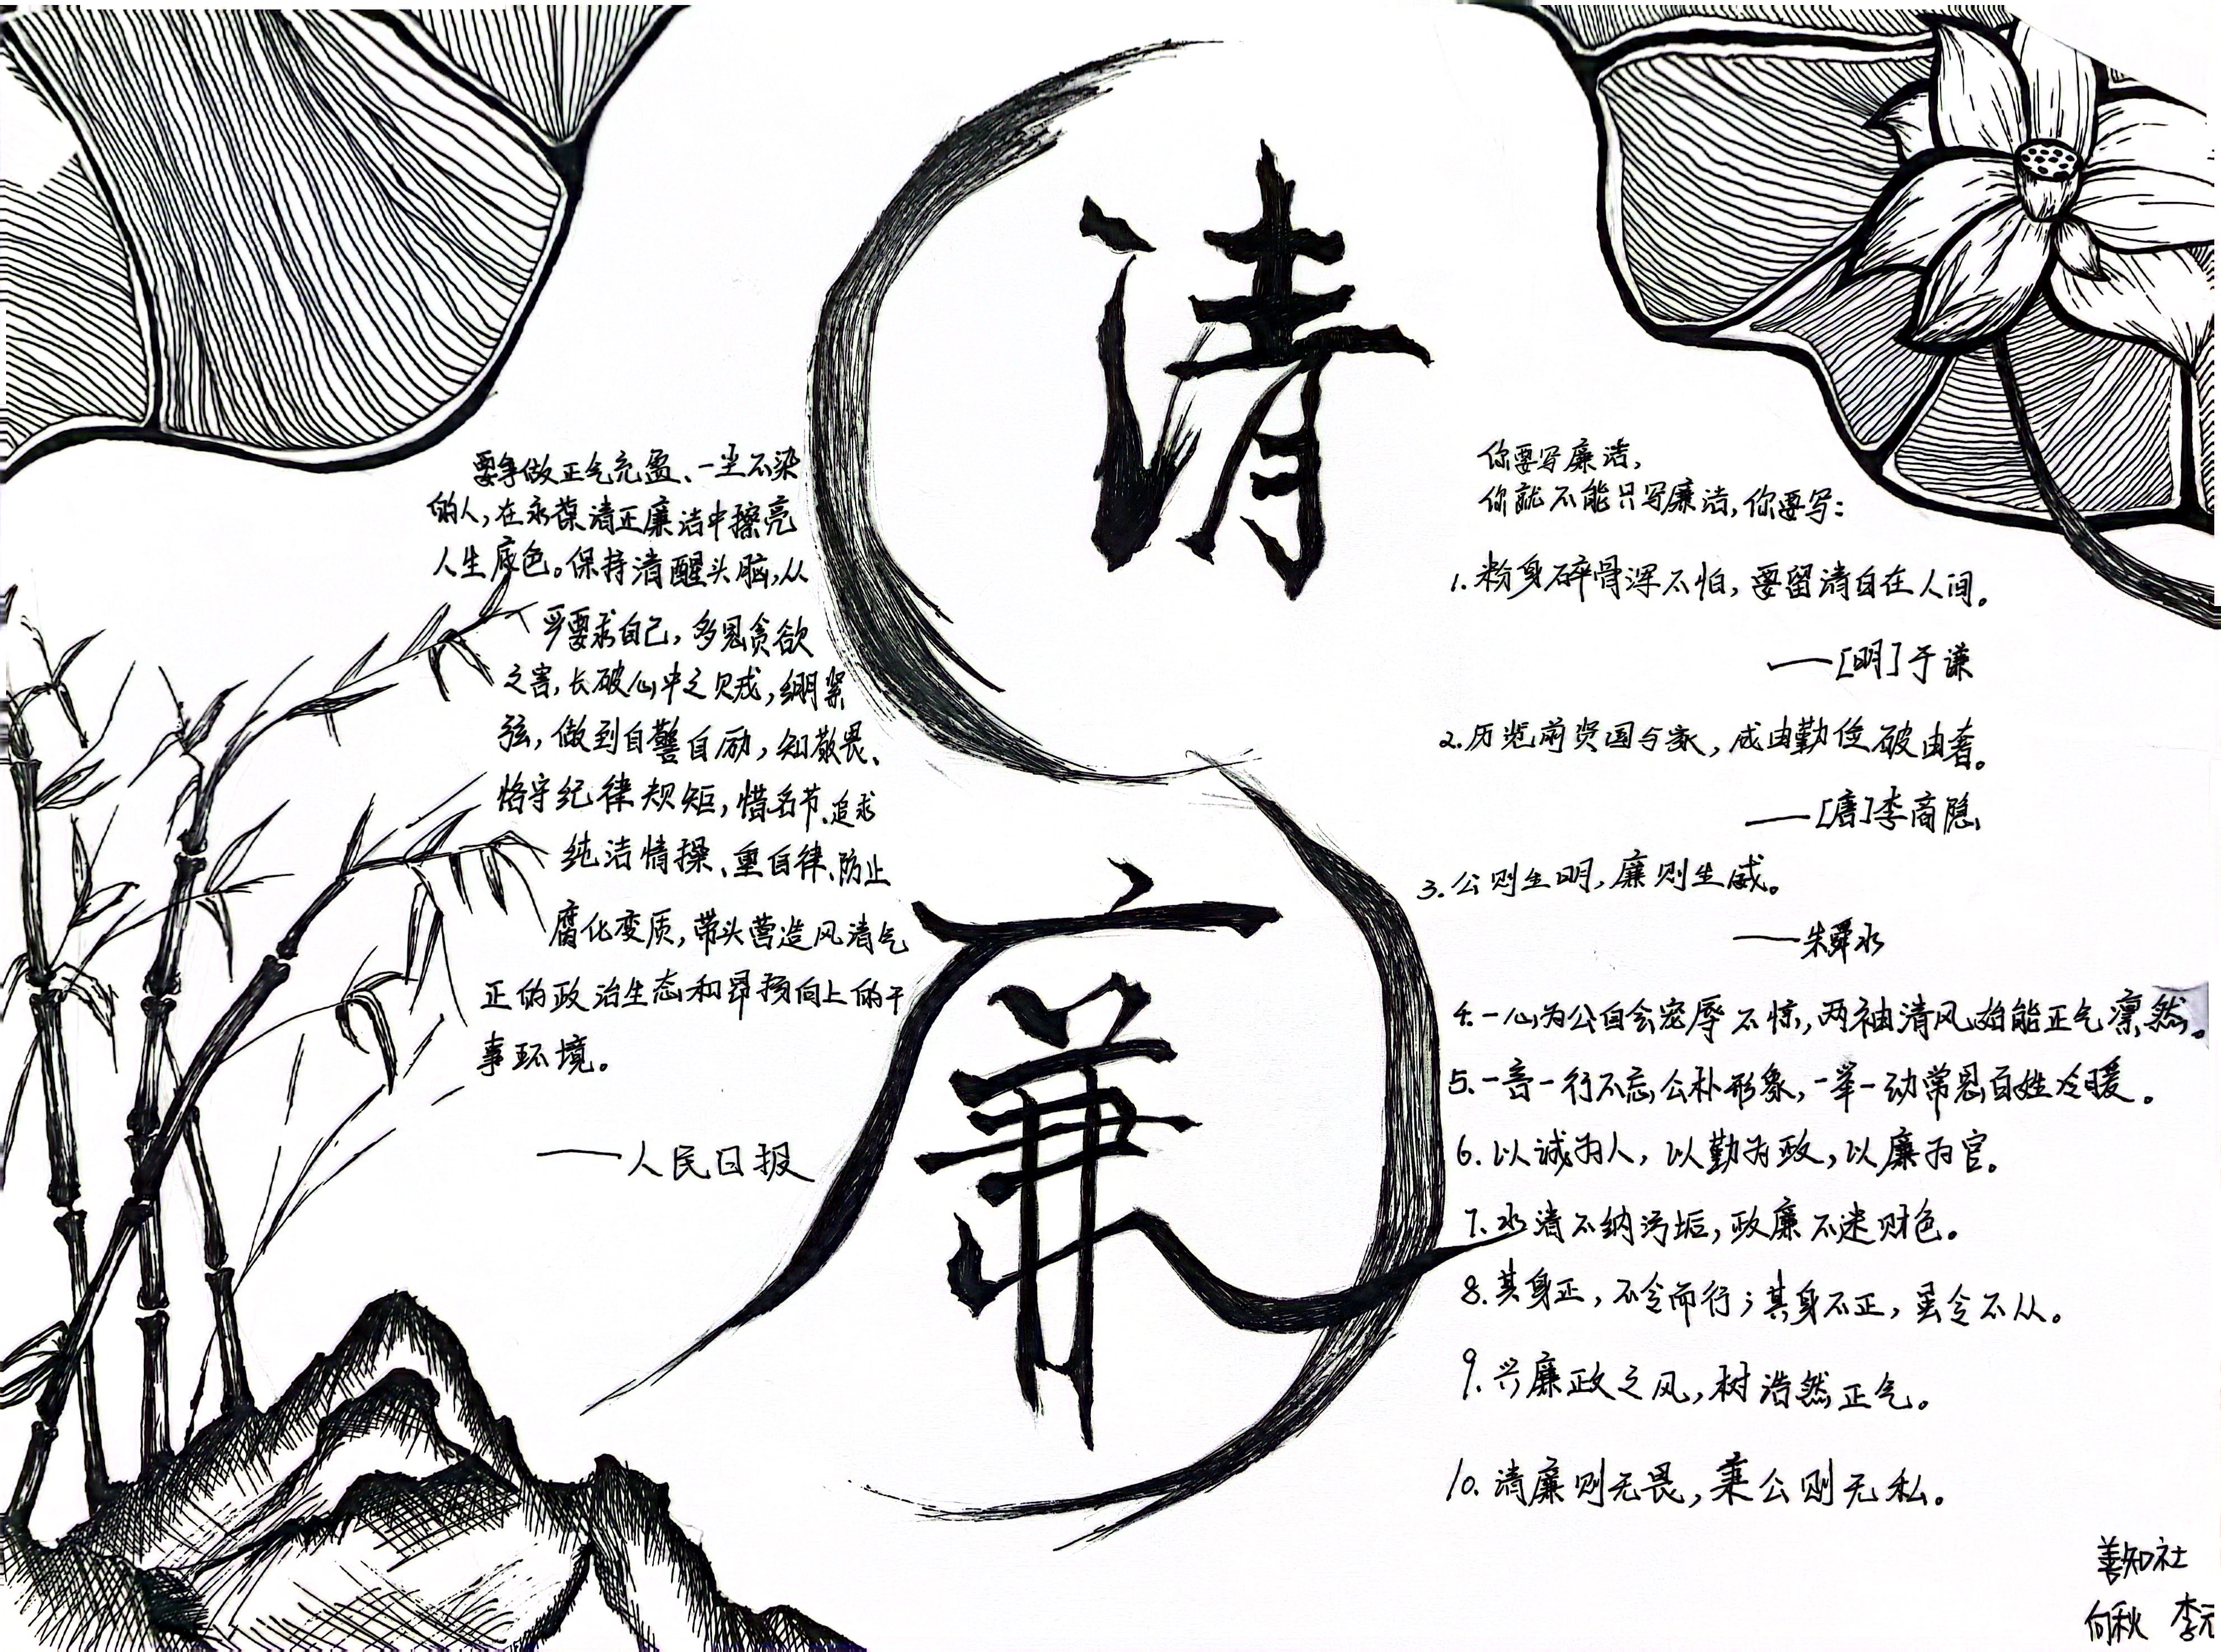 清
廉
要争做正气充盈、一尘不染
的人，在永葆清正廉洁中擦亮
人生底色。保持清醒头脑，从
严要求自己，多思贪欲
之害，长破心中之贼，绷紧
弦，做到自警自励，知敬畏、
恪守纪律规矩，惜名节、追求
纯洁情操、重自律、防止
腐化变质，带头营造风清气
正的政治生态和昂扬向上的干
事环境。
——人民日报
你要写廉洁，
你就不能只写廉洁，你要写：
1.粉身碎骨浑不怕，要留清白在人间。
——[明]于谦
2.历览前贤国与家，成由勤俭破由奢。
——[唐]李商隐
3.公则生明，廉则生威。
——朱舜水
4.一心为公自会宠辱不惊，两袖清风始能正气凛然。
5.一言一行不忘公朴形象，一举一动常思百姓冷暖。
6.以诚为人，以勤为政，以廉为官。
7.水清不纳污垢，政廉不迷财色。
8.其身正，不令而行；其身不正，虽令不从。
9.兴廉政之风，树浩然正气。
10.清廉则无畏，秉公则无私。
善知社
向秋 李元